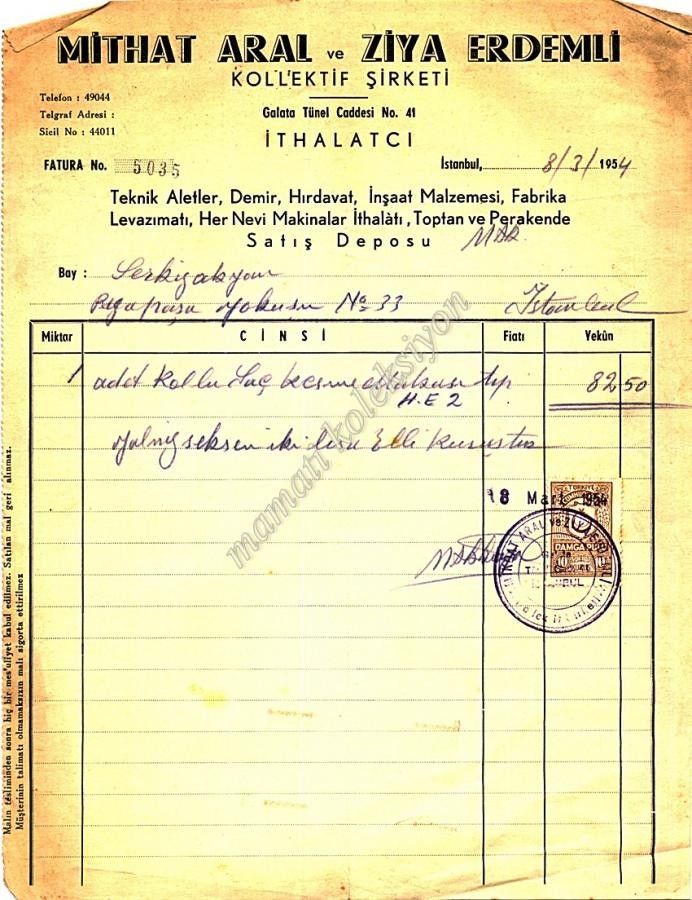 MİTHAT ARAL ve ZİYA ERDEMLİ
KOLL'EKTİF ŞİRKETİ
Telefon : 49044
Telgraf Adresi :
Sicil No : 44011
Galata Tünel Caddesi No. 41
İTHALATCI
FATURA No. 5035
İstanbul, 8/3/1954
Teknik Aletler, Demir, Hırdavat, İnşaat Malzemesi, Fabrika
Levazımatı, Her Nevi Makinalar İthalâtı, Toptan ve Perakende
Satış Deposu
Bay : Serkizakyan
yokuşu No 33 İstanbul
Miktar CİNSİ Fiatı Yekûn
1 adet Kollu Saç kesme tip 82 50
H.E 2
Yalnız seksen iki lira Elli Kuruştur
18 Mart 1954
TÜRKİYE
DAMGA PULU
MİTHAT ARAL VE ZİYA ERDEMLİ
İSTANBUL
Kollektif Şirketi
Malın tesliminden sonra hiç bir mes'uliyet kabul edilmez. Satılan mal geri alınmaz.
Müşterinin talimatı olmamaksızın malı sigorta ettirilmez
mamati koleksiyon